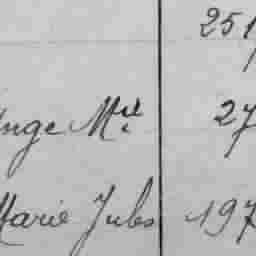 251
Ange Mie 27
Marie Jules 197